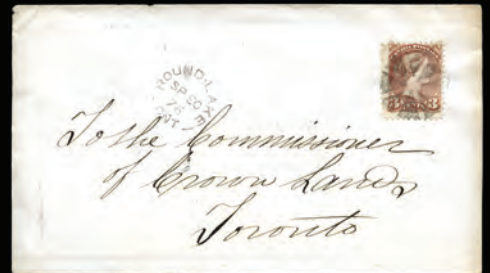 ROUND-LAKE
SP 20
76
ONT
3 3
To the Commissioner
of Crown Lands
Toronto